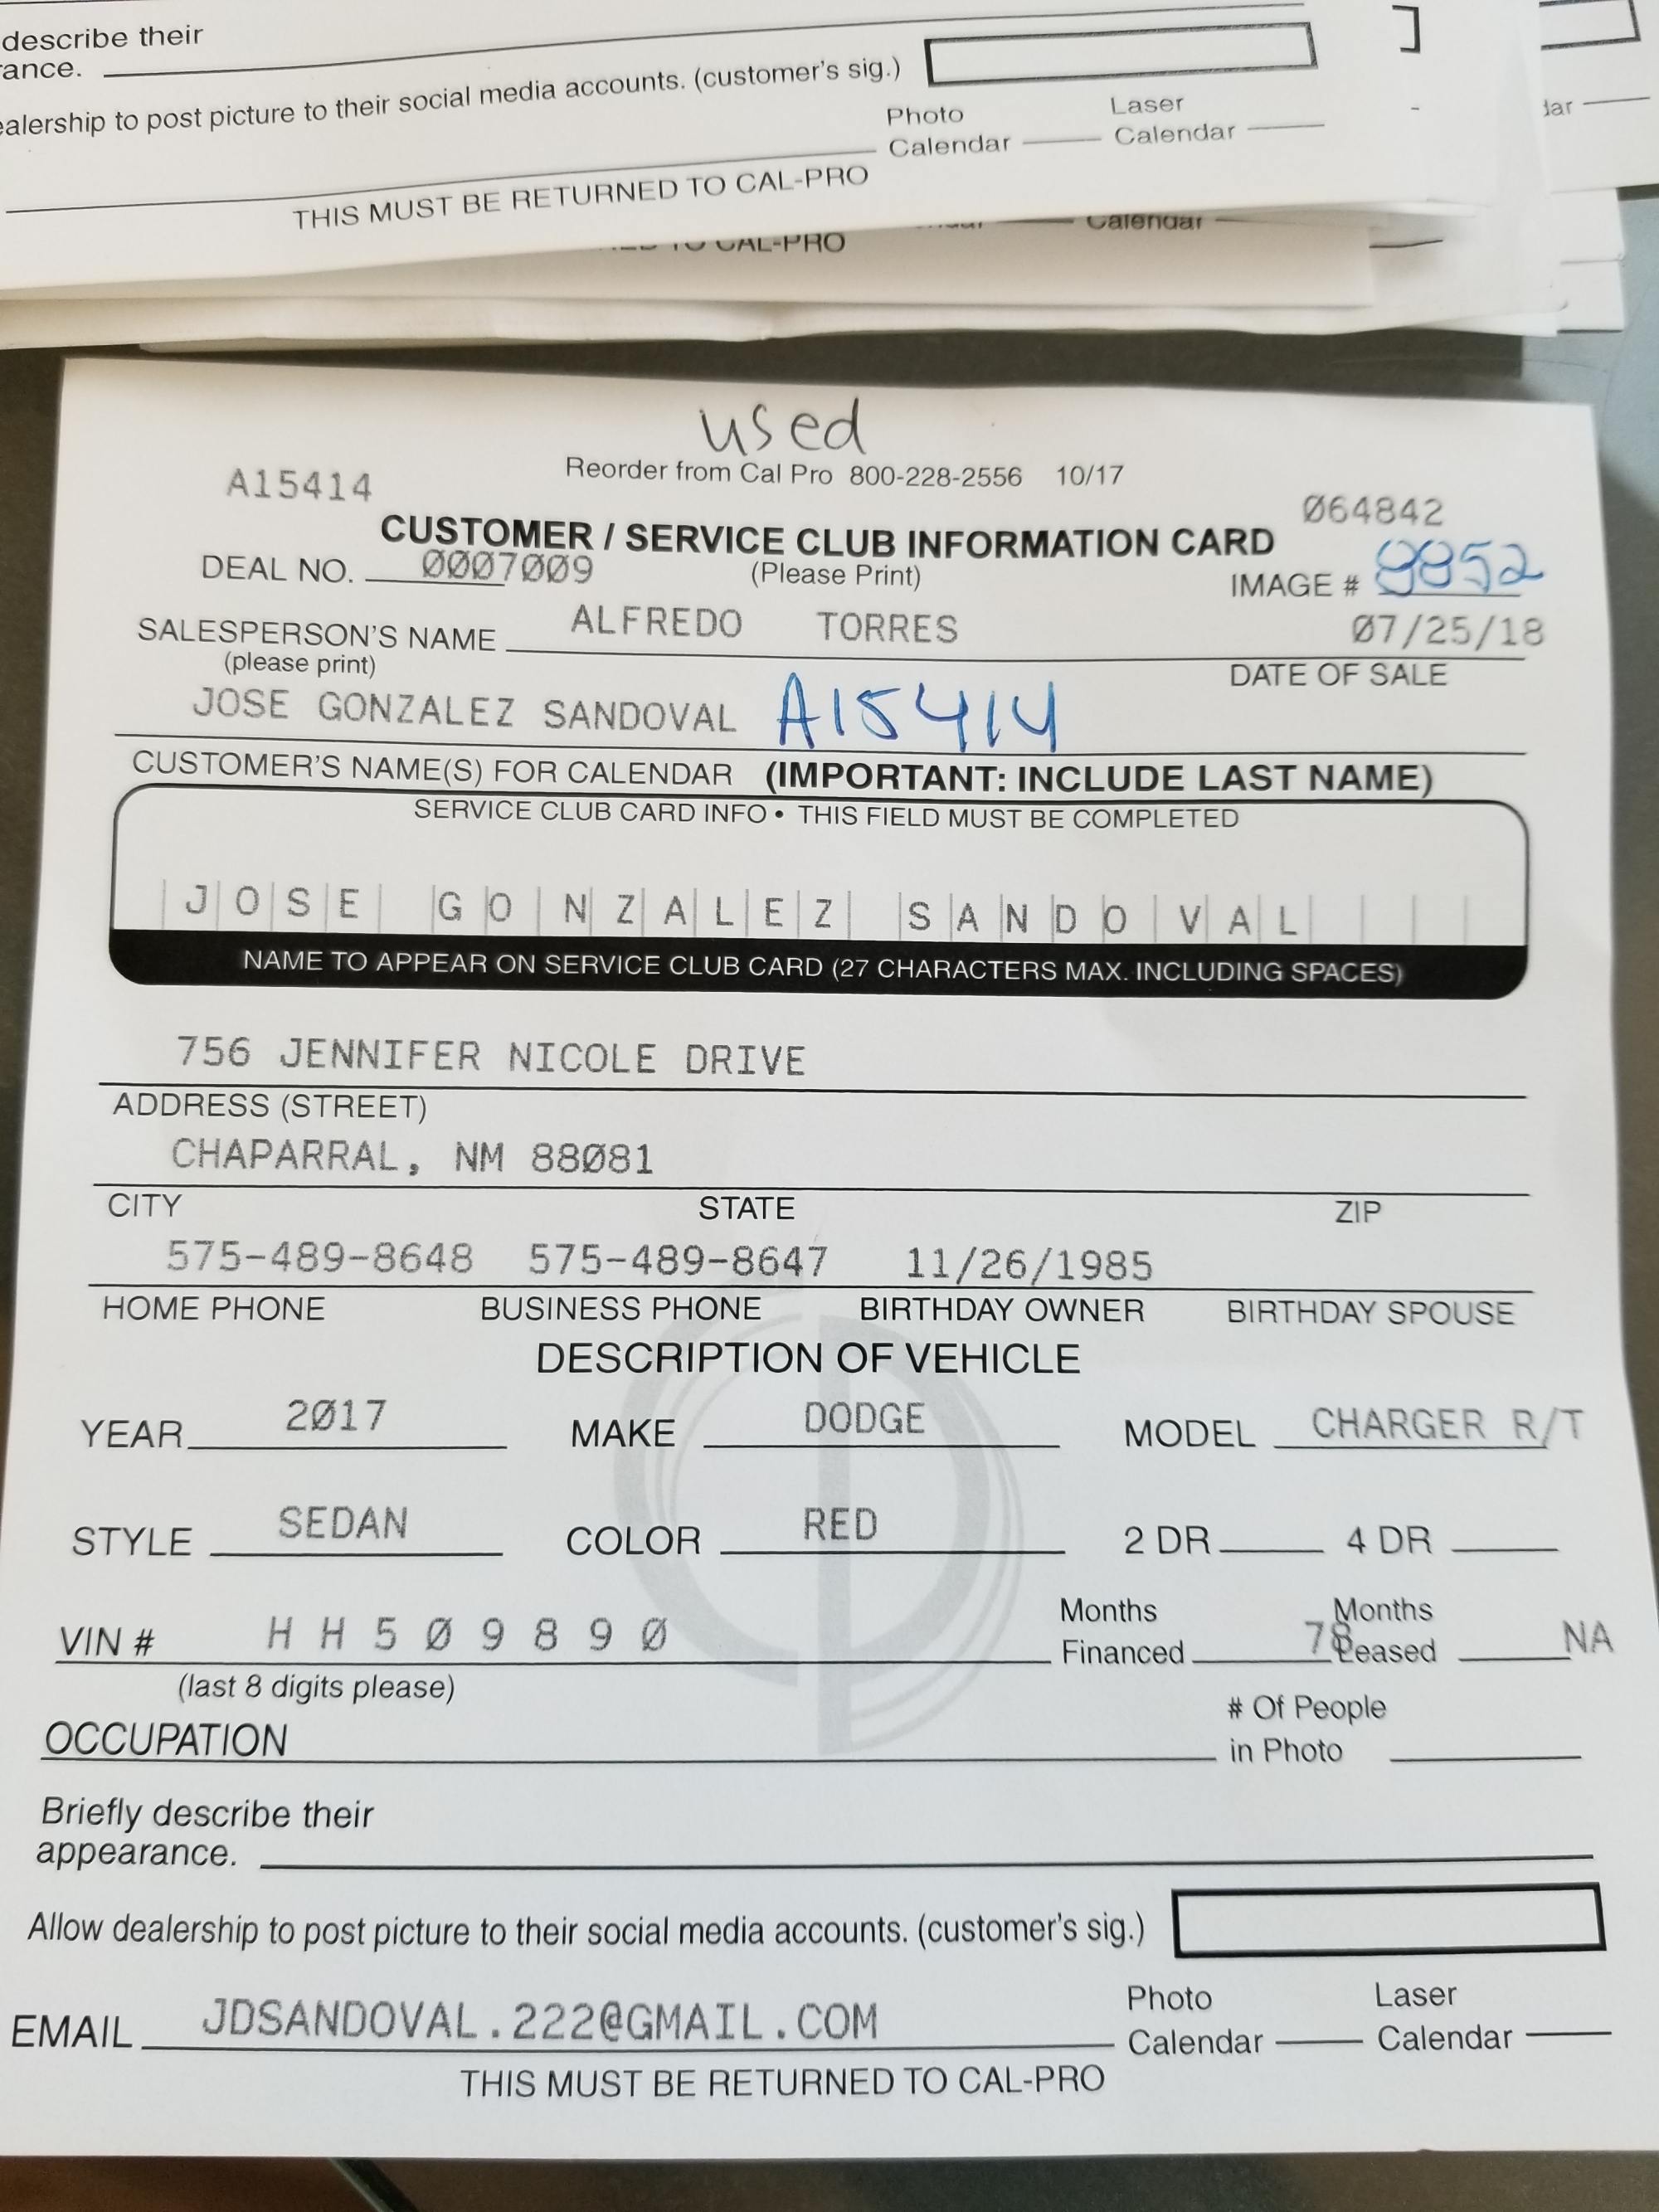 describe their
ance.
ealership to post picture to their social media accounts. (customer's sig.)
Photo Laser
Calendar Calendar
dar
THIS MUST BE RETURNED TO CAL-PRO
Calendar
TO CAL-PRO
used
Reorder from Cal Pro 800-228-2556 10/17
A15414
Ø64842
CUSTOMER / SERVICE CLUB INFORMATION CARD
DEAL NO. ØØØ7ØØ9 (Please Print) IMAGE # 9852
SALESPERSON'S NAME ALFREDO TORRES Ø7/25/18
(please print) DATE OF SALE
JOSE GONZALEZ SANDOVAL A15414
CUSTOMER'S NAME(S) FOR CALENDAR (IMPORTANT: INCLUDE LAST NAME)
SERVICE CLUB CARD INFO • THIS FIELD MUST BE COMPLETED
JOSE GONZALEZ SANDOVAL
NAME TO APPEAR ON SERVICE CLUB CARD (27 CHARACTERS MAX. INCLUDING SPACES)
756 JENNIFER NICOLE DRIVE
ADDRESS (STREET)
CHAPARRAL, NM 88Ø81
CITY STATE ZIP
575-489-8648 575-489-8647 11/26/1985
HOME PHONE BUSINESS PHONE BIRTHDAY OWNER BIRTHDAY SPOUSE
DESCRIPTION OF VEHICLE
YEAR 2Ø17 MAKE DODGE MODEL CHARGER R/T
STYLE SEDAN COLOR RED 2 DR 4 DR
VIN # H H 5 Ø 9 8 9 Ø
Months Financed 78 Months Leased NA
(last 8 digits please)
OCCUPATION # Of People in Photo
Briefly describe their
appearance.
Allow dealership to post picture to their social media accounts. (customer's sig.)
EMAIL JDSANDOVAL.222@GMAIL.COM
Photo Laser
Calendar Calendar
THIS MUST BE RETURNED TO CAL-PRO